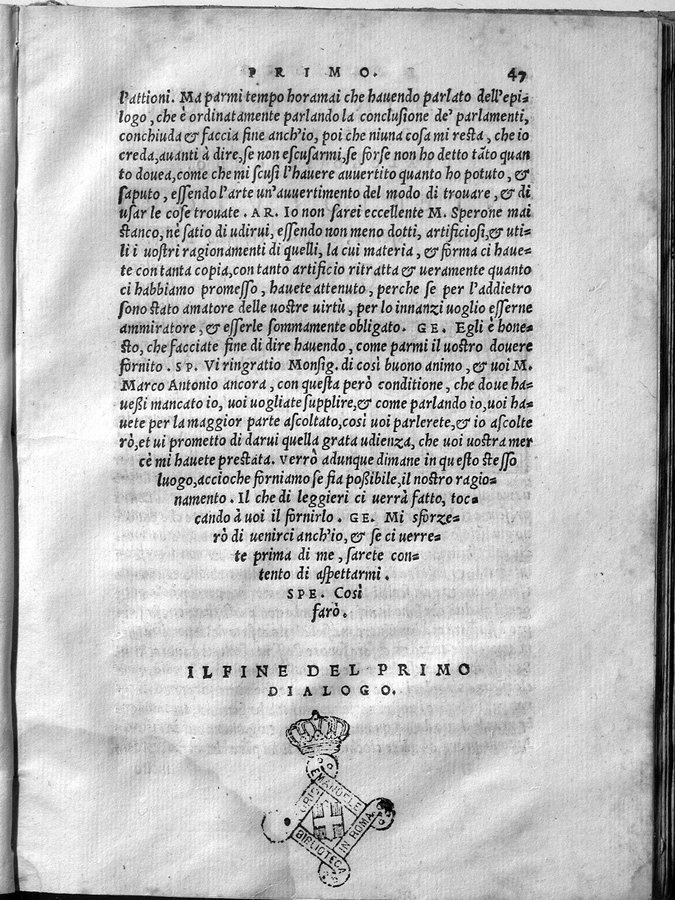 PRIMO. 47
l'attioni. Ma parmi tempo horamai che hauendo parlato dell'epi=
logo, che è ordinatamente parlando la conclusione de' parlamenti,
conchiuda & faccia fine anch'io, poi che niuna cosa mi resta, che io
creda, auanti à dire, se non escusarmi, se forse non ho detto tãto quan
to douea, come che mi scusi l'hauere auuertito quanto ho potuto, &
saputo, essendo l'arte un'auuertimento del modo di trouare, & di
usar le cose trouate. AR. Io non sarei eccellente M. Sperone mai
stanco, nè satio di udirui, essendo non meno dotti, artificiosi, & uti=
li i uostri ragionamenti di quelli, la cui materia, & forma ci haue=
te con tanta copia, con tanto artificio ritratta & ueramente quanto
ci habbiamo promesso, hauete attenuto, perche se per l'addietro
sono stato amatore delle uostre uirtù, per lo innanzi uoglio esserne
ammiratore, & esserle sommamente obligato. GE. Egli è hone=
sto, che facciate fine di dire hauendo, come parmi il uostro douere
fornito. SP. Vi ringratio Monsig. di così buono animo, & uoi M.
Marco Antonio ancora, con questa però conditione, che doue ha=
ueßi mancato io, uoi uogliate supplire, & come parlando io, uoi ha=
uete per la maggior parte ascoltato, così uoi parlerete, & io ascolte
rò, et ui prometto di darui quella grata udienza, che uoi uostra mer
cè mi hauete prestata. Verrò adunque dimane in questo stesso
luogo, accioche forniamo se fia poßibile, il nostro ragio=
namento. Il che di leggieri ci uerrà fatto, toc=
cando à uoi il fornirlo. GE. Mi sforze=
rò di uenirci anch'io, & se ci uerre=
te prima di me, sarete con=
tento di aspettarmi.
SPE. Così
farò.
IL FINE DEL PRIMO
DIALOGO.
EMANUELE
BIBLIOTECA
IN ROMA